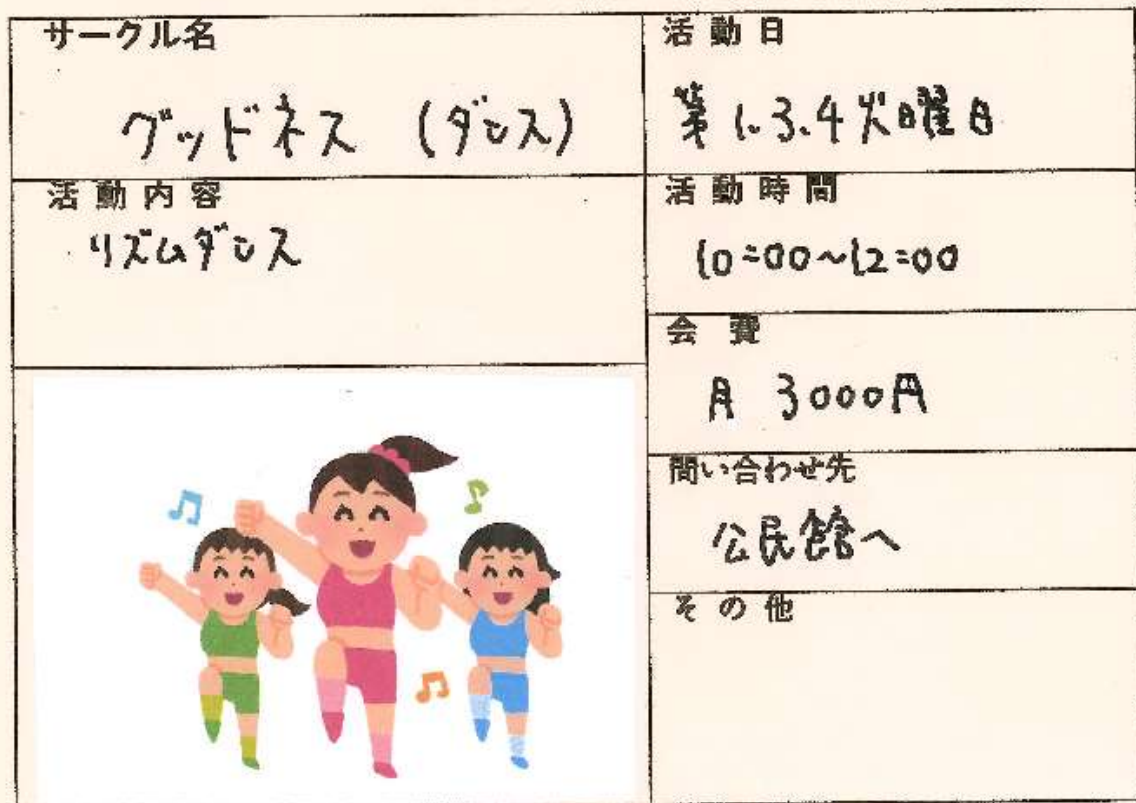 サークル名
グッドネス (ダンス)
活動内容
リズムダンス
活動日
第1.3.4火曜日
活動時間
10:00~12:00
会費
月 3000円
問い合わせ先
公民館へ
その他